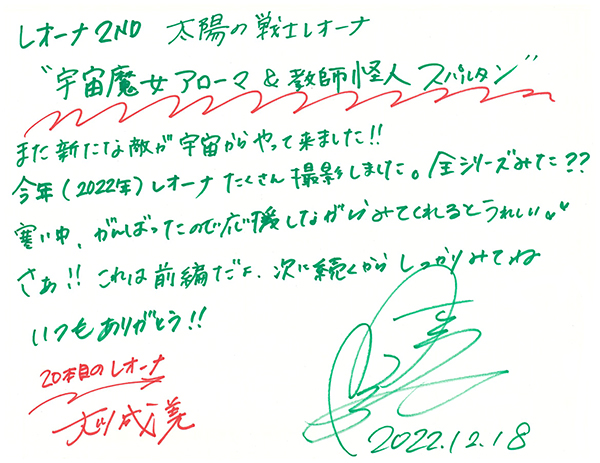 レオーナ2ND 太陽の戦士レオーナ
"宇宙魔女アローマ&教師怪人スパルタン"
また新たな敵が宇宙からやって来ました!!
今年(2022年)レオーナたくさん撮影しました。全シリーズみた??
寒い中、がんばったので応援しながらみてくれるとうれしい♥♥
さぁ!! これは前編だよ、次に続くからしっかりみてね
いつもありがとう!!
20本目のレオーナ
成美
2022.12.18